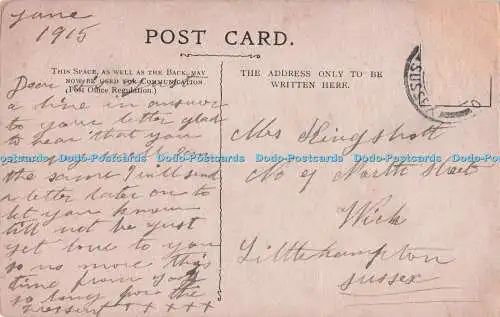 June
1915
POST CARD.
THIS SPACE, AS WELL AS THE BACK, MAY
NOW BE USED FOR COMMUNICATION
(Post Office Regulation.)
THE ADDRESS ONLY TO BE
WRITTEN HERE.
Dear
a line in answer
to your letter glad
to hear that you
the same I will send
a letter later on to
let you know
till not be just
yet love to you
so no more this
time from
so long for the
present + + + +
Mrs Kingshott
No 9 North Street
Wick
Littlehampton
Sussex
SUS
Dodo-Postcards Dodo-Postcards Dodo-Postcards Dodo-Postcards Dodo-Postcards